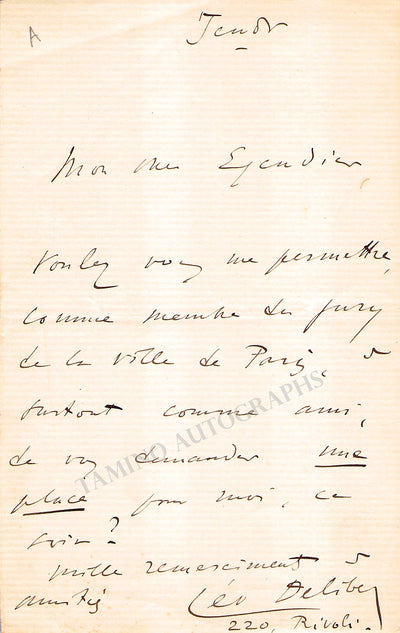 A
Jeudi
Mon cher
Voulez vous me permettre,
comme membre du jury
de la Ville de Paris, &
surtout comme ami,
de vous demander une
place pour moi, ce
soir?
mille remerciments &
amitiés Léo Delibes
220, Rivoli.
TAMINO AUTOGRAPHS